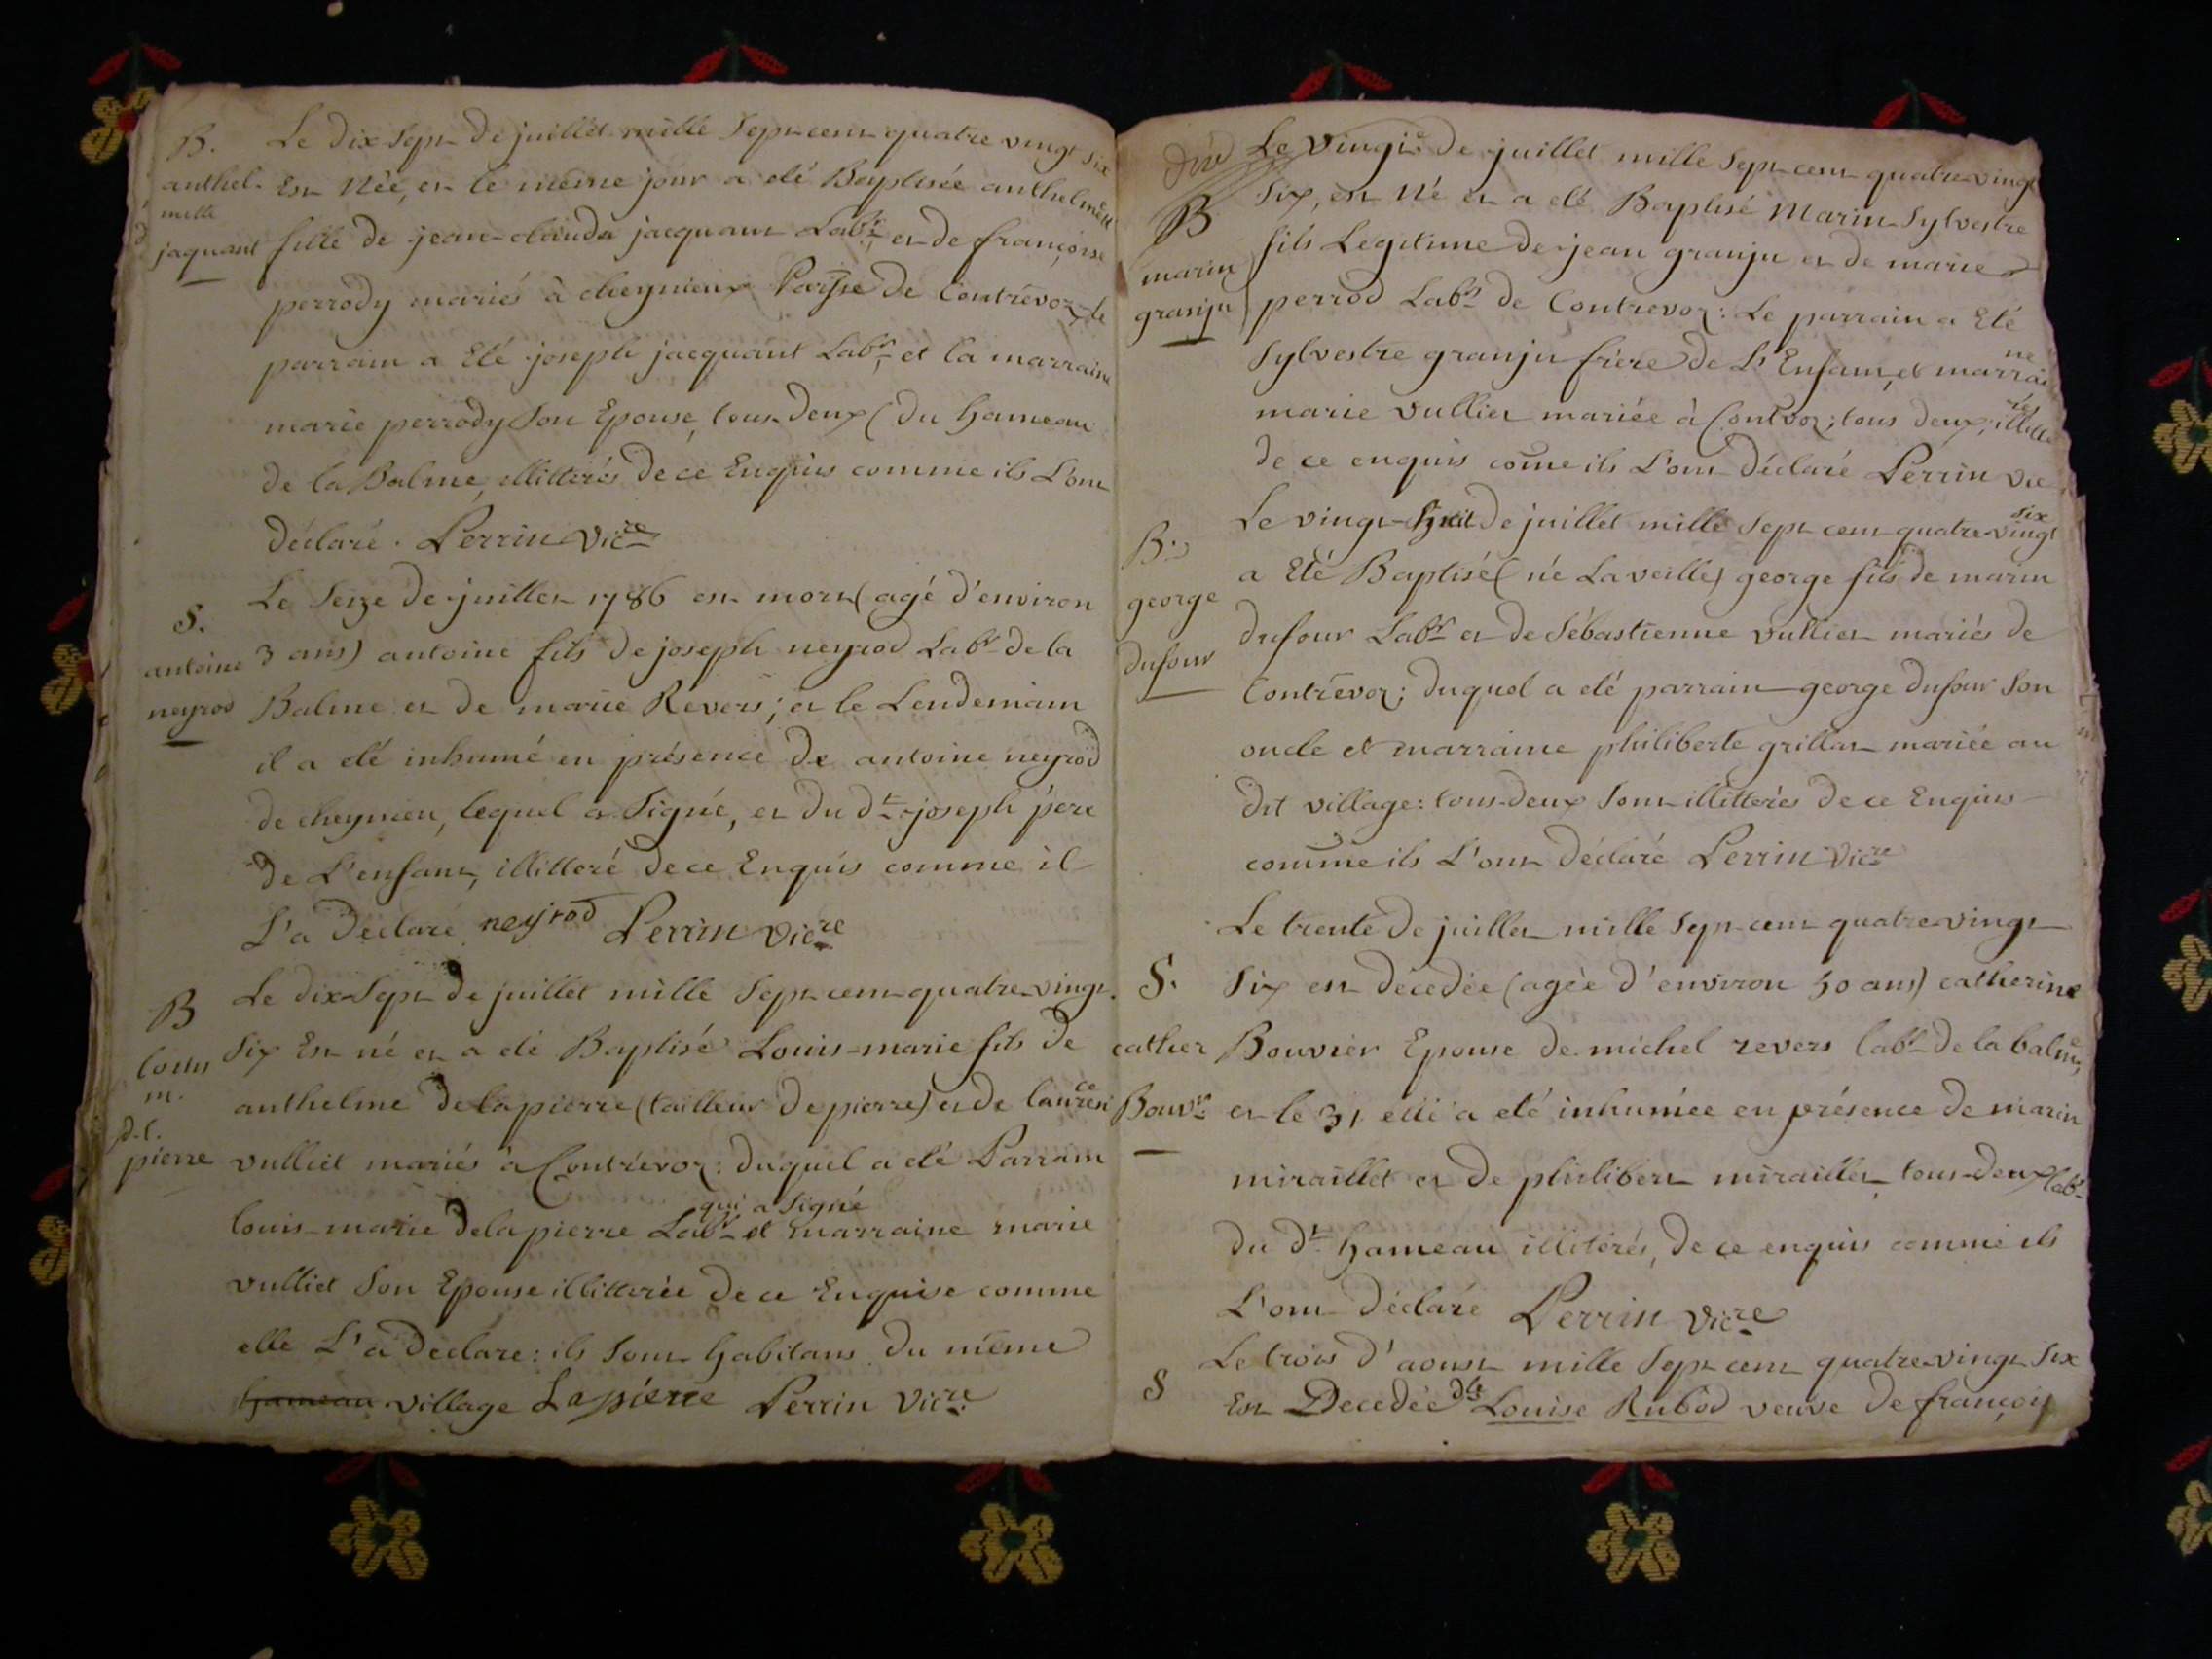 B. Le dix Sept de juillet mille Sept cent quatre vingt six
anthel- Est Née, et le même jour a eté Baptisée anthelmette
mette
jaquant fille de jean-claude jacquant Labr. et de françoise
perrody mariés à cheynieux Parsse de Contrevoz, le
parrain a Eté joseph jacquant Labr. et la marraine
marie perrody Son Epouse, tous-deux (du hameau
de la Balme, illitterés de ce Enquis comme ils L'ont
déclaré. Perrin Vicre
Le Seize de juillet 1786 est mort (agé d'environ
S.
antoine 3 ans) antoine fils de joseph neyrod Labr de la
neyrod Balme et de marie Revers; et le Lendemain
il a eté inhumé en présence de antoine neyrod
de cheynieu, lequel a Signé, et du dt joseph pere
de L'enfant, illitteré de ce Enquis comme il
L'a Déclaré neyrod Perrin Vicre
Le dix-Sept de juillet mille Sept cent quatre-vingt
B
louis Six Est né et a eté Baptisé Louis-marie fils de
m. anthelme de lapierre (tailleur de pierre) et de laurence
d.l.
pierre vulliet mariés à Contrevoz: duquel a eté Parrain
qui a Signé
louis-marie delapierre Labr et marraine marie
vulliet Son Epouse illitterée de ce Enquise comme
elle L'a déclare: ils Sont habitans du même
hameau village Lapierre Perrin Vicre
Le Vingt de juillet mille Sept cent quatre-vingt
B Six, est Né et a eté Baptisé Marin-Sylvestre
marin fils Legitime de jean granju et de marie
granju perrod Labrs de Contrevoz: Le parrain a Eté
Sylvestre granju frere de L'Enfant, et marraine
marie Vulliet mariée à Contvoz; tous deux illitte
rés
de ce enquis come ils L'ont Déclaré Perrin vic
Le vingt-huit de juillet mille Sept cent quatre-vingt six
B. a Eté Baptisé (né La veille) george fils de marin
george
dufour dufour Labr et de Sébastienne vulliet mariés de
Contrevoz; duquel a eté parrain george dufour Son
oncle et marraine philiberte grillat mariée au
dit village: tous-deux Sont illitterés de ce Enquis
comme ils L'ont Déclaré Perrin Vicre
Le trente de juillet mille Sept cent quatre-vingt
S. Six est décedée (agée d'environ 50 ans) catherine
cather Bouvier Epouse de michel revers labr de la balme,
Bouvr et le 31 elle a eté inhumée en présence de marin
miraillet et de philibert miraillet tous-deux labr
du dt hameau illiterés, de ce enquis comme ils
L'ont déclaré Perrin Vicre
Le trois d'aoust mille Sept cent quatre-vingt Six
S Est Decedée dle Louise Rubod veuve de françois